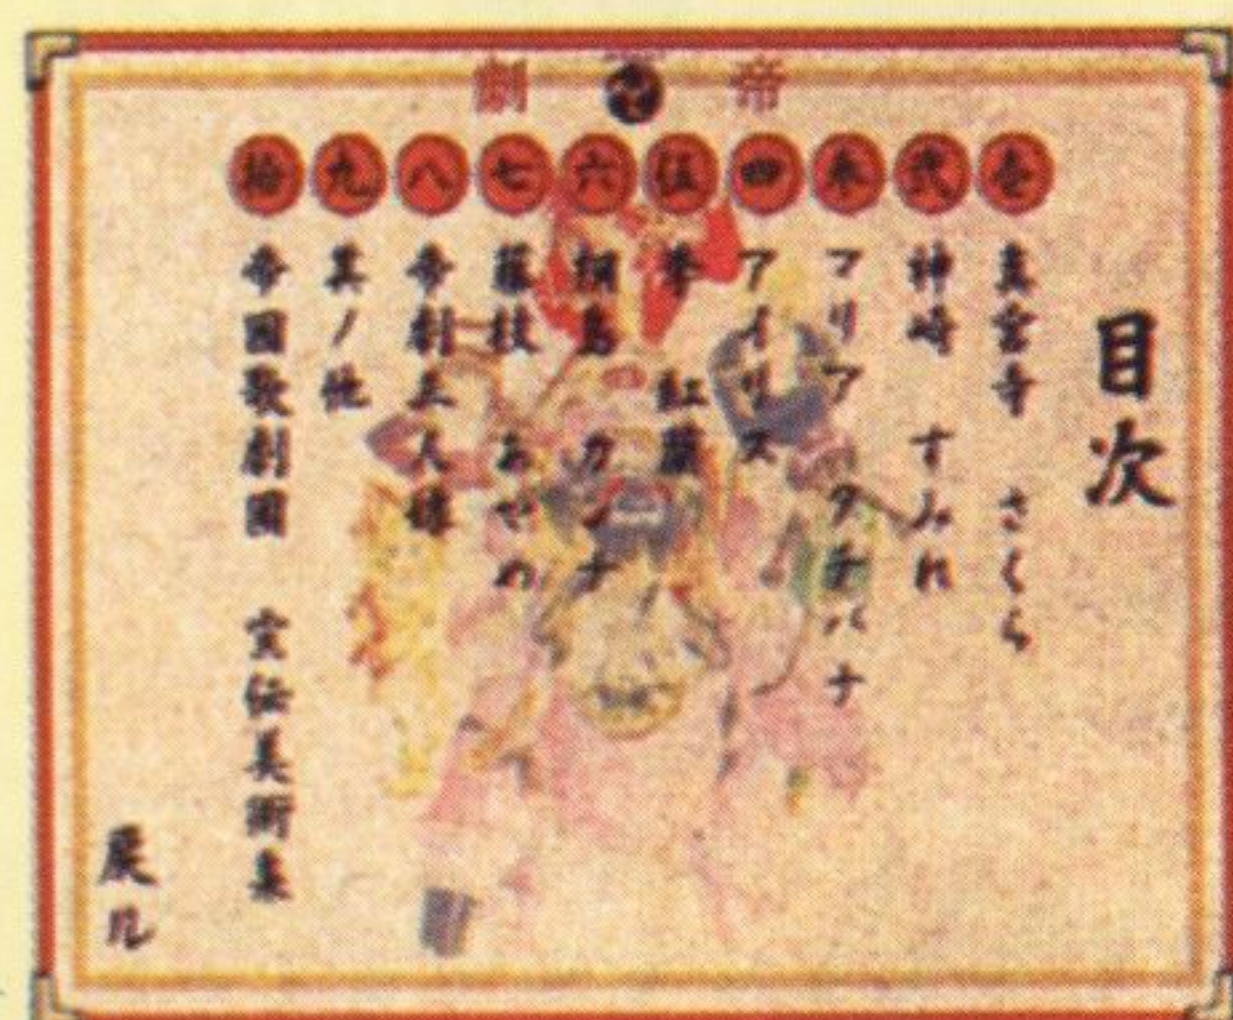 帝劇
目次
壱 真宮寺 さくら
弐 神崎 すみれ
参 マリア タチバナ
四 アイリス
伍 李 紅蘭
六 桐島 カンナ
七 藤枝 あやめ
八 帝劇三人娘
九 其ノ他
拾 帝國歌劇團 宣伝美術集
戻ル